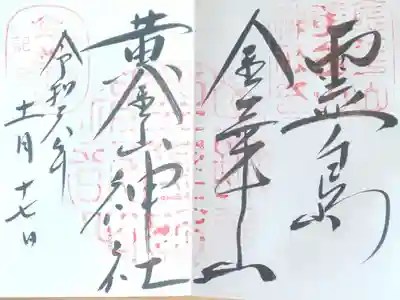 霊島
金華山
黄金山神社
令和六年
十一月十七日